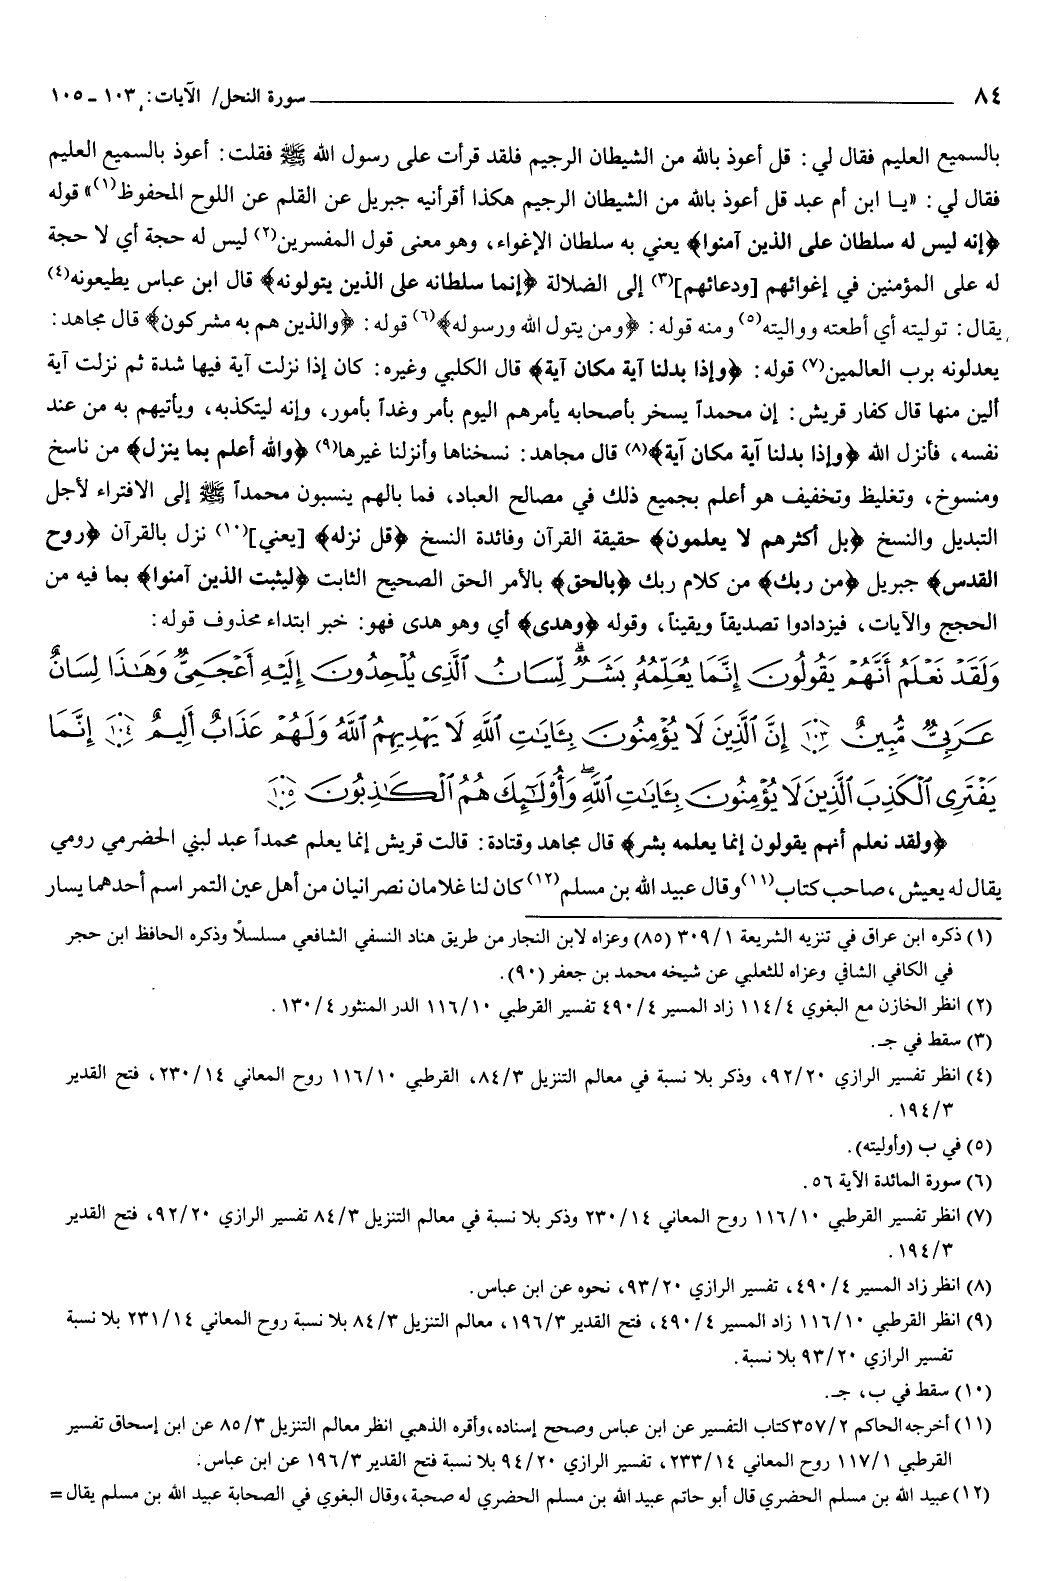 ٨٤ سورة النحل/ الآيات: ١٠٣ ـ ١٠٥
بالسميع العليم فقال لي: قل أعوذ بالله من الشيطان الرجيم فلقد قرأت على رسول الله ﷺ فقلت: أعوذ بالسميع العليم
فقال لي: «يـا ابن أم عبد قل أعوذ بالله من الشيطان الرجيم هكذا أقرأنيه جبريل عن القلم عن اللوح المحفوظ(١)» قوله
﴿إنه ليس له سلطان على الذين آمنوا﴾ يعني به سلطان الإغواء، وهو معنى قول المفسرين(٢) ليس له حجة أي لا حجة
له على المؤمنين في إغوائهم [ودعائهم](٣) إلى الضلالة ﴿إنما سلطانه على الذين يتولونه﴾ قال ابن عباس يطيعونه(٤)
يقال: توليته أي أطعته وواليته(٥) ومنه قوله: ﴿ومن يتول الله ورسوله﴾(٦) قوله: ﴿والذين هم به مشركون﴾ قال مجاهد:
يعدلونه برب العالمين(٧) قوله: ﴿وإذا بدلنا آية مكان آية﴾ قال الكلبي وغيره: كان إذا نزلت آية فيها شدة ثم نزلت آية
ألين منها قال كفار قريش: إن محمداً يسخر بأصحابه يأمرهم اليوم بأمر وغداً بأمور، وإنه ليتكذبه، ويأتيهم به من عند
نفسه، فأنزل الله ﴿وإذا بدلنا آية مكان آية﴾(٨) قال مجاهد: نسخناها وأنزلنا غيرها(٩) ﴿والله أعلم بما ينزل﴾ من ناسخ
ومنسوخ، وتغليظ وتخفيف هو أعلم بجميع ذلك في مصالح العباد، فما بالهم ينسبون محمداً ﷺ إلى الافتراء لأجل
التبديل والنسخ ﴿بل أكثرهم لا يعلمون﴾ حقيقة القرآن وفائدة النسخ ﴿قل نزله﴾ [يعني](١٠) نزل بالقرآن ﴿روح
القدس﴾ جبريل ﴿من ربك﴾ من كلام ربك ﴿بالحق﴾ بالأمر الحق الصحيح الثابت ﴿ليثبت الذين آمنوا﴾ بما فيه من
الحجج والآيات، فيزدادوا تصديقاً ويقيناً، وقوله ﴿وهدى﴾ أي وهو هدى فهو: خبر ابتداء محذوف قوله:
وَلَقَدْ نَعْلَمُ أَنَّهُمْ يَقُولُونَ إِنَّمَا يُعَلِّمُهُ بَشَرٌ ۗ لِّسَانُ الَّذِي يُلْحِدُونَ إِلَيْهِ أَعْجَمِيٌّ وَهَٰذَا لِسَانٌ
عَرَبِيٌّ مُّبِينٌ ﴿١٠٣﴾ إِنَّ الَّذِينَ لَا يُؤْمِنُونَ بِـَٔايَٰتِ اللَّهِ لَا يَهْدِيهِمُ اللَّهُ وَلَهُمْ عَذَابٌ أَلِيمٌ ﴿١٠٤﴾ إِنَّمَا
يَفْتَرِي الْكَذِبَ الَّذِينَ لَا يُؤْمِنُونَ بِـَٔايَٰتِ اللَّهِ ۖ وَأُوْلَٰٓئِكَ هُمُ الْكَٰذِبُونَ ﴿١٠٥﴾
﴿ولقد نعلم أنهم يقولون إنما يعلمه بشر﴾ قال مجاهد وقتادة: قالت قريش إنما يعلم محمداً عبد لبني الحضرمي رومي
يقال له يعيش، صاحب كتاب(١١) وقال عبيد الله بن مسلم(١٢) كان لنا غلامان نصرانيان من أهل عين التمر اسم أحدهما يسار
(١) ذكره ابن عراق في تنزيه الشريعة ٣٠٩/١ (٨٥) وعزاه لابن النجار من طريق هناد النسفي الشافعي مسلسلاً وذكره الحافظ ابن حجر
في الكافي الشافي وعزاه للثعلبي عن شيخه محمد بن جعفر (٩٠).
(٢) انظر الخازن مع البغوي ١١٤/٤ زاد المسير ٤٩٠/٤ تفسير القرطبي ١١٦/١٠ الدر المنثور ١٣٠/٤.
(٣) سقط في جـ.
(٤) انظر تفسير الرازي ٩٢/٢٠، وذكر بلا نسبة في معالم التنزيل ٨٤/٣، القرطبي ١١٦/١٠ روح المعاني ٢٣٠/١٤، فتح القدير
١٩٤/٣.
(٥) في ب (وأوليته).
(٦) سورة المائدة الآية ٥٦.
(٧) انظر تفسير القرطبي ١١٦/١٠ روح المعاني ٢٣٠/١٤ وذكر بلا نسبة في معالم التنزيل ٨٤/٣ تفسير الرازي ٩٢/٢٠، فتح القدير
١٩٤/٣.
(٨) انظر زاد المسير ٤٩٠/٤، تفسير الرازي ٩٣/٢٠، نحوه عن ابن عباس.
(٩) انظر القرطبي ١١٦/١٠ زاد المسير ٤٩٠/٤، فتح القدير ١٩٦/٣، معالم التنزيل ٨٤/٣ بلا نسبة روح المعاني ٢٣١/١٤ بلا نسبة
تفسير الرازي ٩٣/٢٠ بلا نسبة.
(١٠) سقط في ب، جـ.
(١١) أخرجه الحاكم ٣٥٧/٢ كتاب التفسير عن ابن عباس وصحح إسناده، وأقره الذهبي انظر معالم التنزيل ٨٥/٣ عن ابن إسحاق تفسير
القرطبي ١١٧/١ روح المعاني ٢٣٣/١٤، تفسير الرازي ٩٤/٢٠ بلا نسبة فتح القدير ١٩٦/٣ عن ابن عباس.
(١٢) عبيد الله بن مسلم الحضري قال أبو حاتم عبيد الله بن مسلم الحضري له صحبة، وقال البغوي في الصحابة عبيد الله بن مسلم يقال =